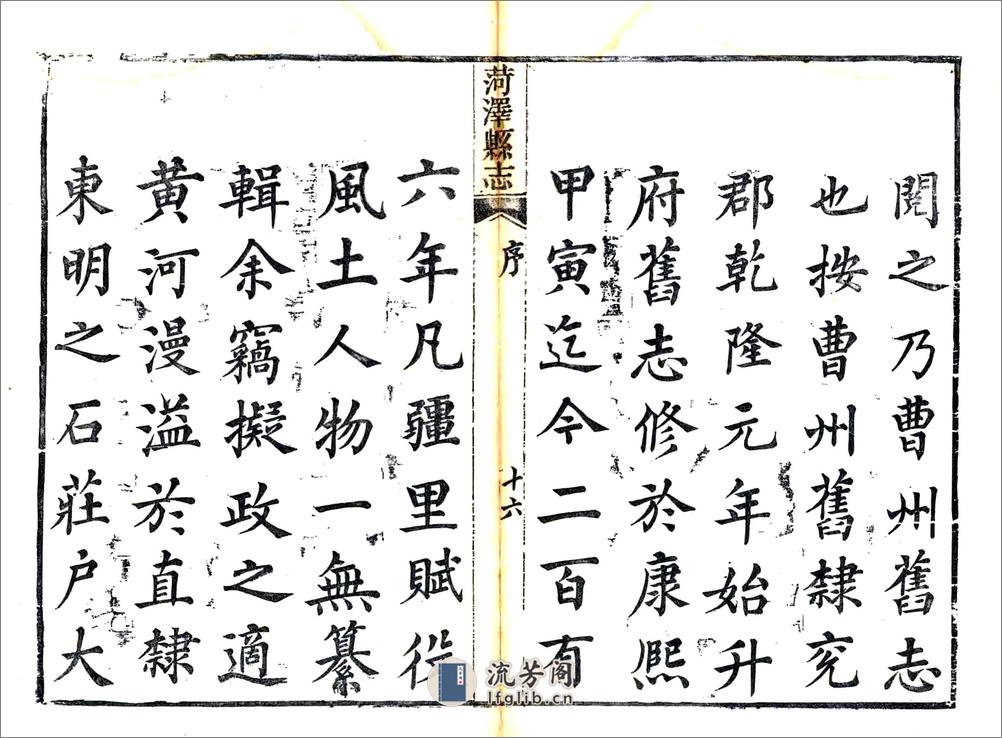 閱之乃曹州舊志
也按曹州舊隸兖
郡乾隆元年始升
府舊志修於康熙
甲寅迄今二百有
菏澤縣志
序
十六
六年凡疆里賦役
風土人物一無纂
輯余竊擬政之適
黄河漫溢於直隸
東明之石莊户大
流芳阁
lfglib.cn